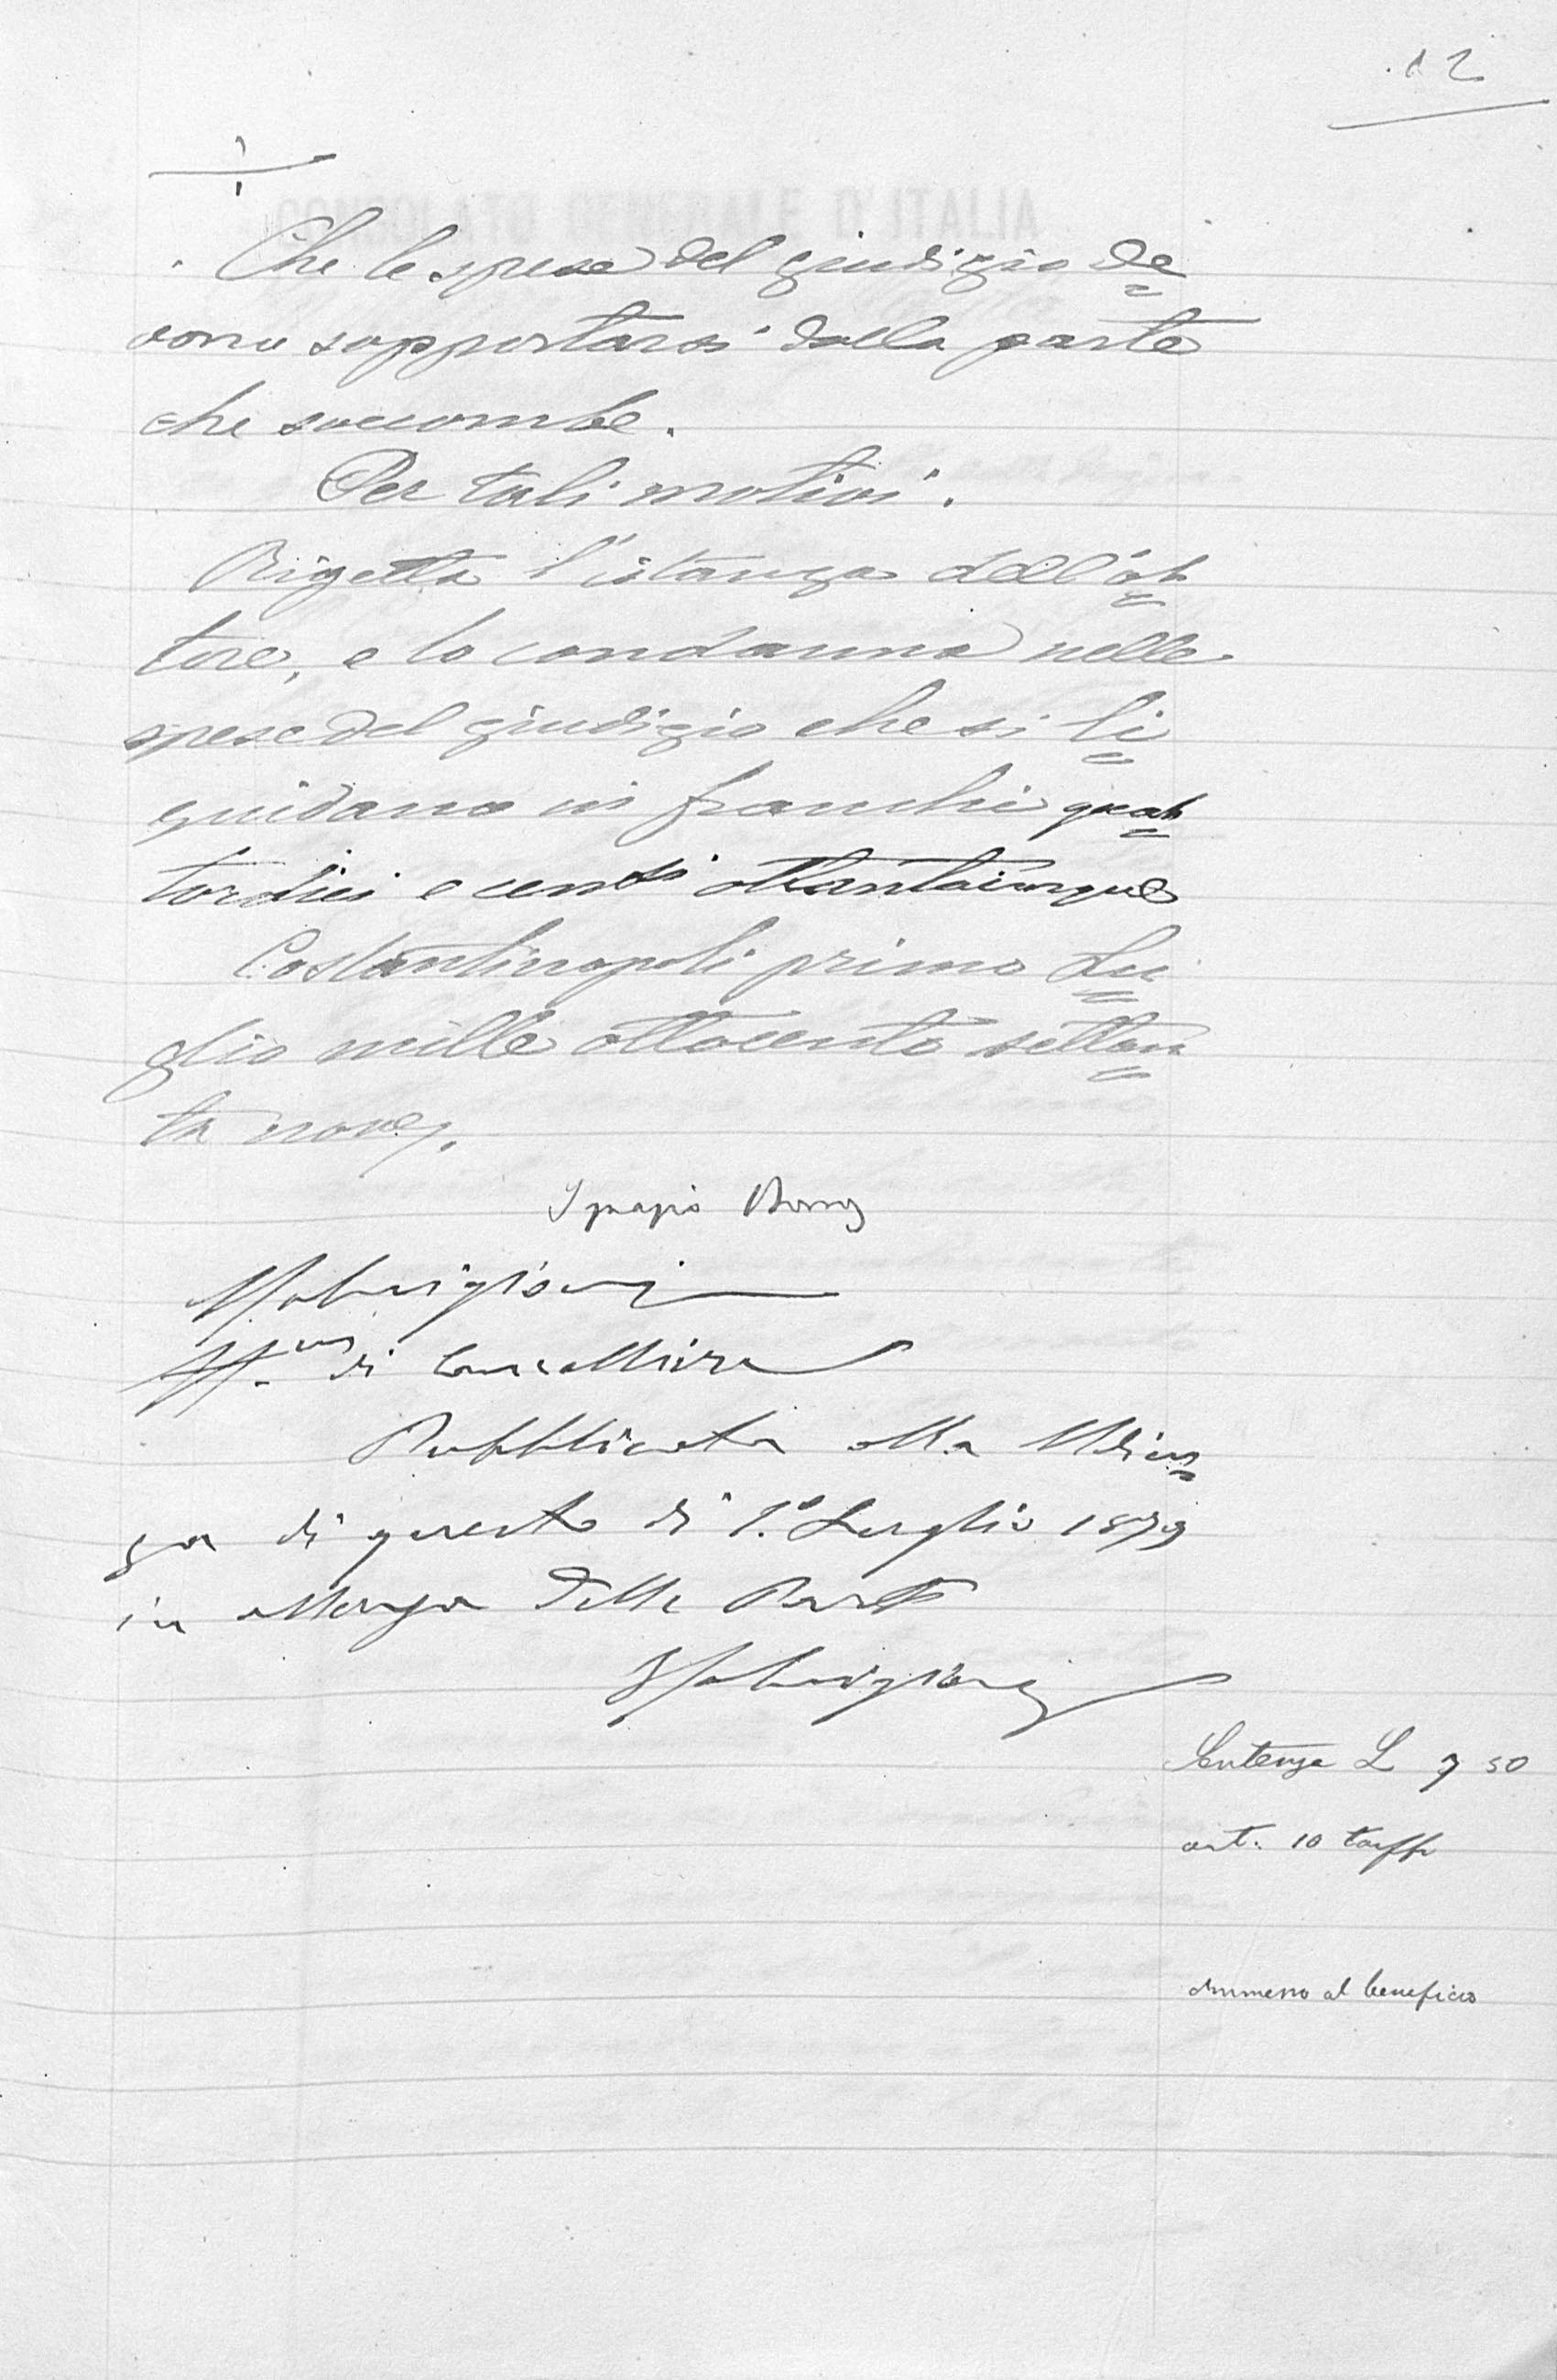 12
CONSOLATO GENERALE D'ITALIA
Che le spese del giudizio de=
vono sopportarsi dalla parte
che soccombe.
Per tali motivi.
Rigetta l'istanza dell'at=
tore, e lo condanna nelle
spese del giudizio che si li=
quidano in franchi quat=
tordici e cent.i ottantacinque
Costantinopoli primo Lu=
glio mille ottocento settan=
ta nove.
Ignazio
di Cancelliere
Pubblicata alla Udien=
za di questo dì 1.o Luglio 1879
in assenza delle Parti
Sentenza L 7 50
art. 10 tariffa
Ammesso al beneficio